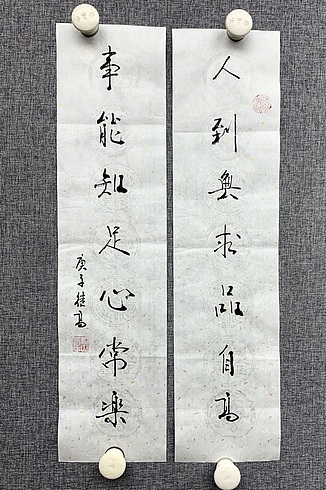 人到無求品自高
事能知足心常樂
庚子桂高